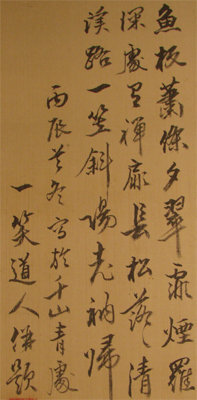 魚板蕭條夕翠霏煙羅
深處禪扉長松落〻清
溪路一笠斜陽老衲歸
丙辰冬寫於千山青處
一笑道人併題